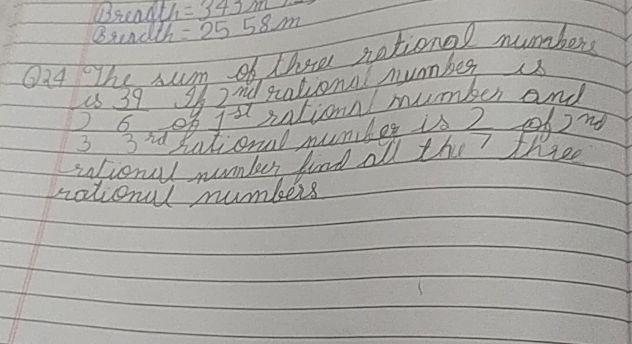 Breadth = 343 m
Breadth = 25 58 m
Q24 The sum of three rational numbers
is 39 If 2nd rational number is
2 6 of 1st rational number and
3 3rd rational number is 2 of 2nd
rational number find all the 7 three
rational numbers